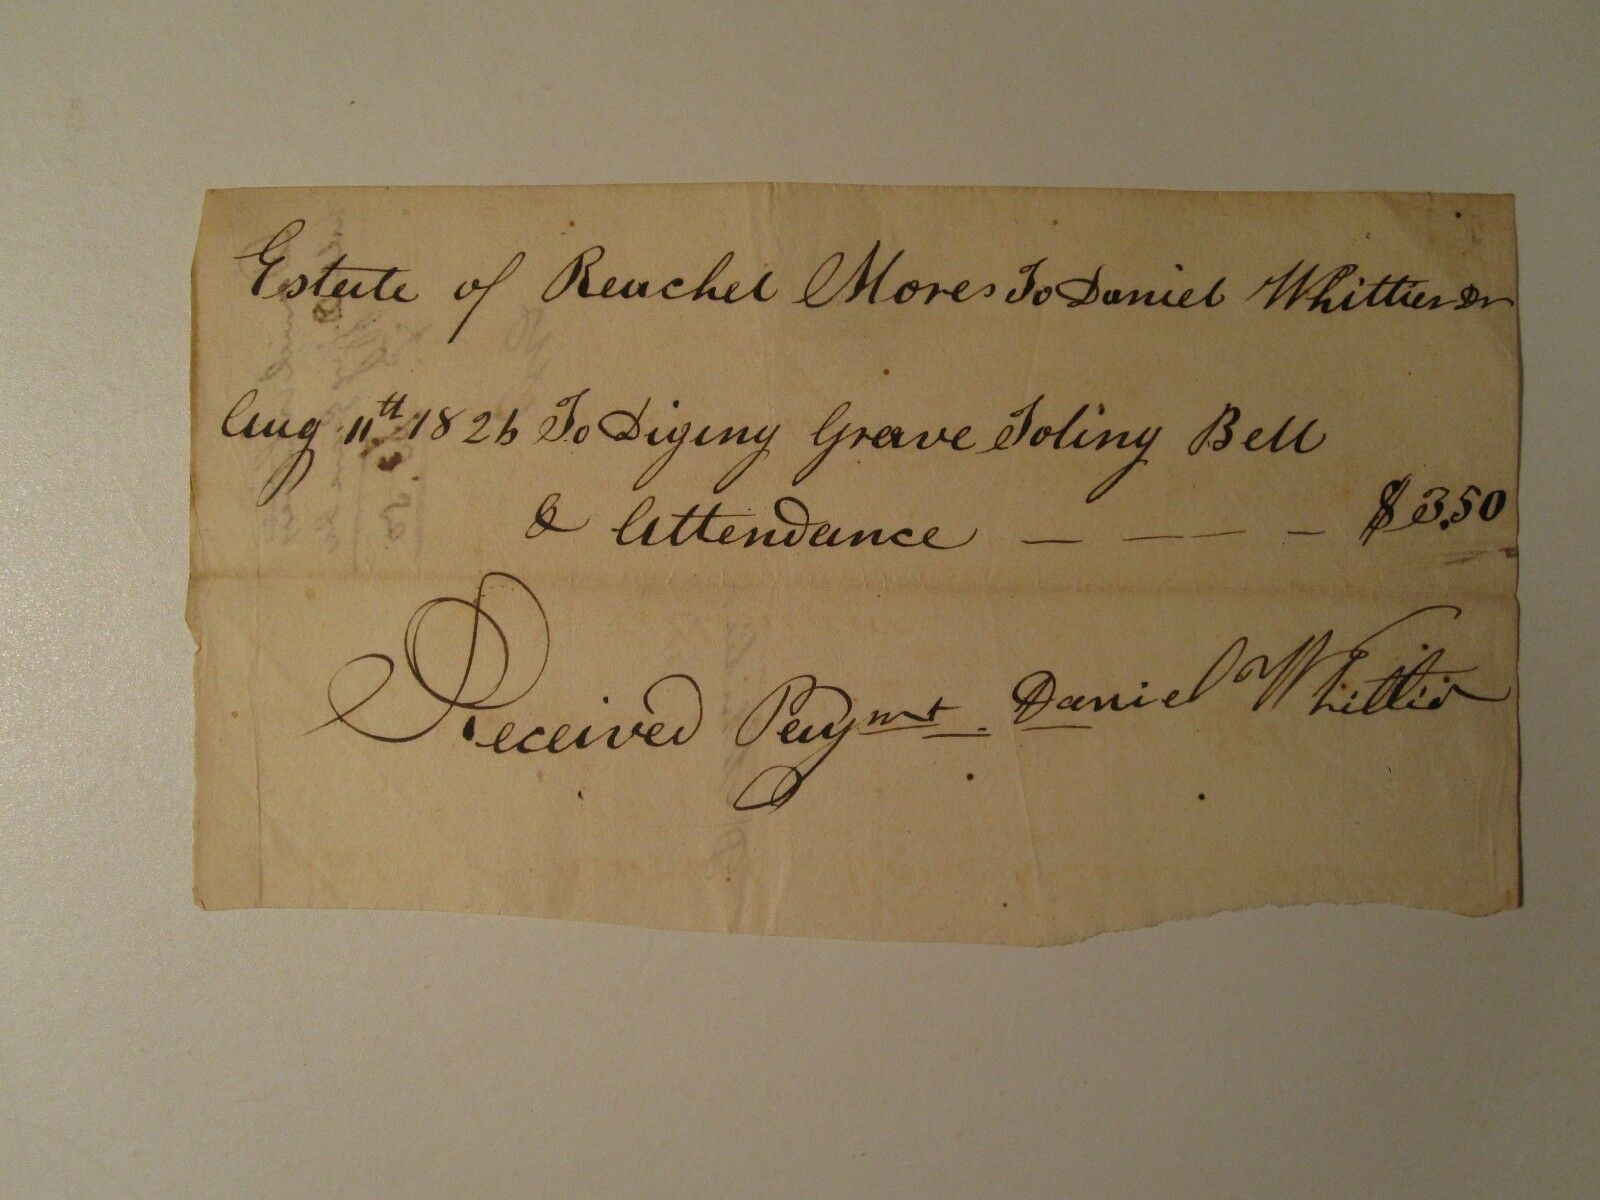 Estate of Reachel Mores To Daniel Whittier Dr
Aug 11th 1826 To Diging Greave Toling Bell
& Attendance — — — — $3.50
Received Paymt. Daniel Whittier